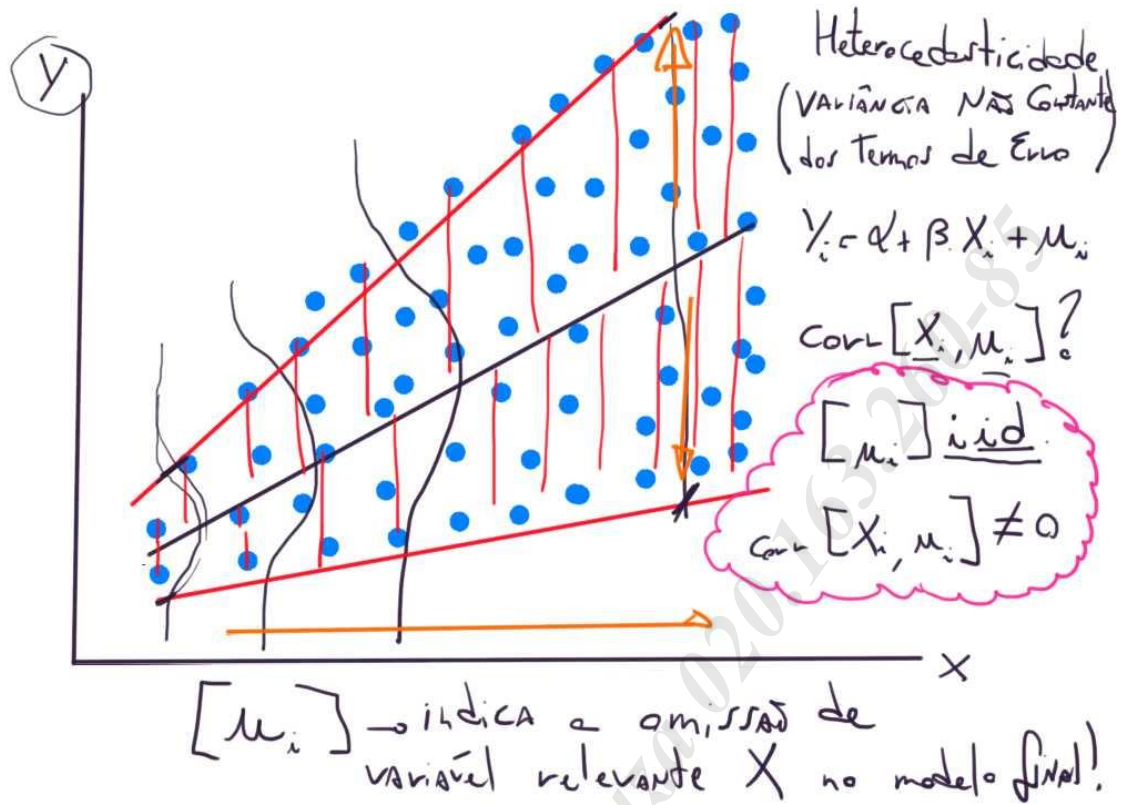 Y
Heterocedasticidade
(VARIÂNCIA NÃO Constante
dos Termos de Erro)
Yi = α + β.Xi + μi
Corr [Xi, μi]?
[μi] iid
Corr [Xi, μi] ≠ 0
X
[μi] → indica a omissão de
variável relevante X no modelo final!
020.163.260-85